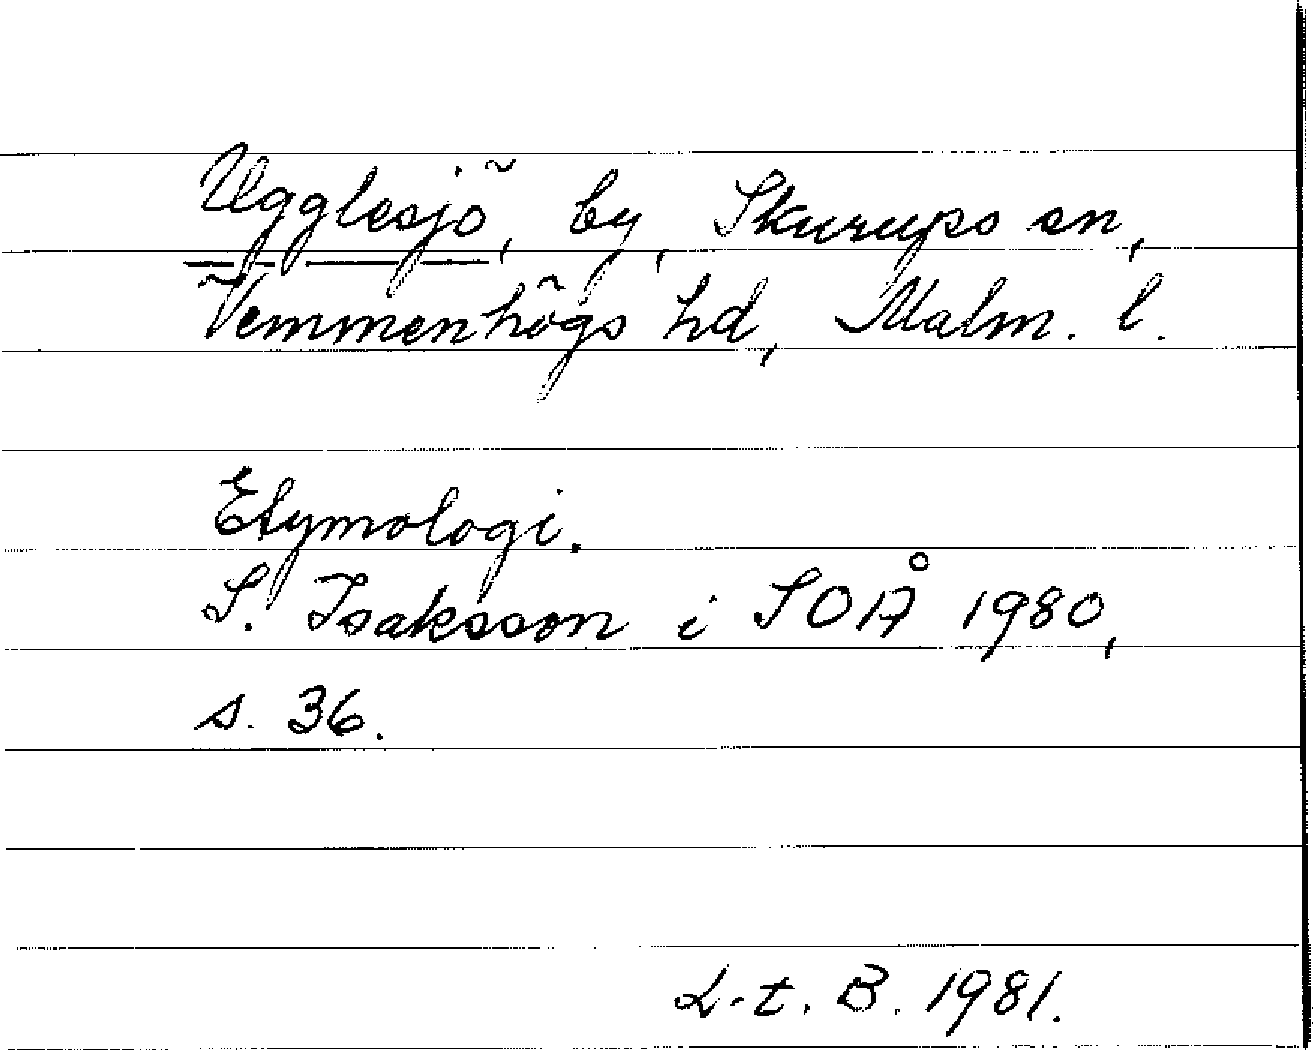 Ugglesjö, by, Skurups sn,
Vemmenhögs hd, Malm. l.
Etymologi.
S. Isaksson i SOÅ 1980,
s. 36.
L-t. B. 1981.